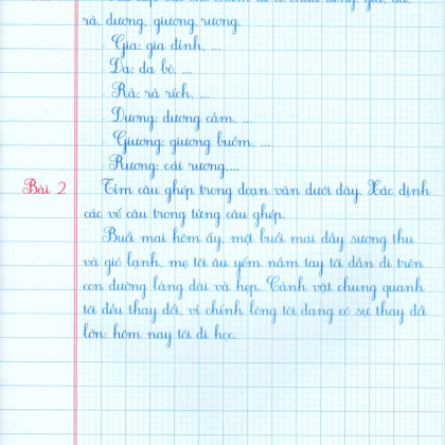 rả, dương, giương, rương.
- Gia: gia đình, ...
- Da: da bò, ...
- Rả: rả rích, ...
- Dương: dương cầm, ...
- Giương: giương buồm, ...
- Rương: cái rương,...
Bài 2 Tìm câu ghép trong đoạn văn dưới đây. Xác định
các vế câu trong từng câu ghép.
Buổi mai hôm ấy, một buổi mai đầy sương thu
và gió lạnh, mẹ tôi âu yếm nắm tay tôi dẫn đi trên
con đường làng dài và hẹp. Cảnh vật chung quanh
tôi đều thay đổi, vì chính lòng tôi đang có sự thay đổi
lớn: hôm nay tôi đi học.